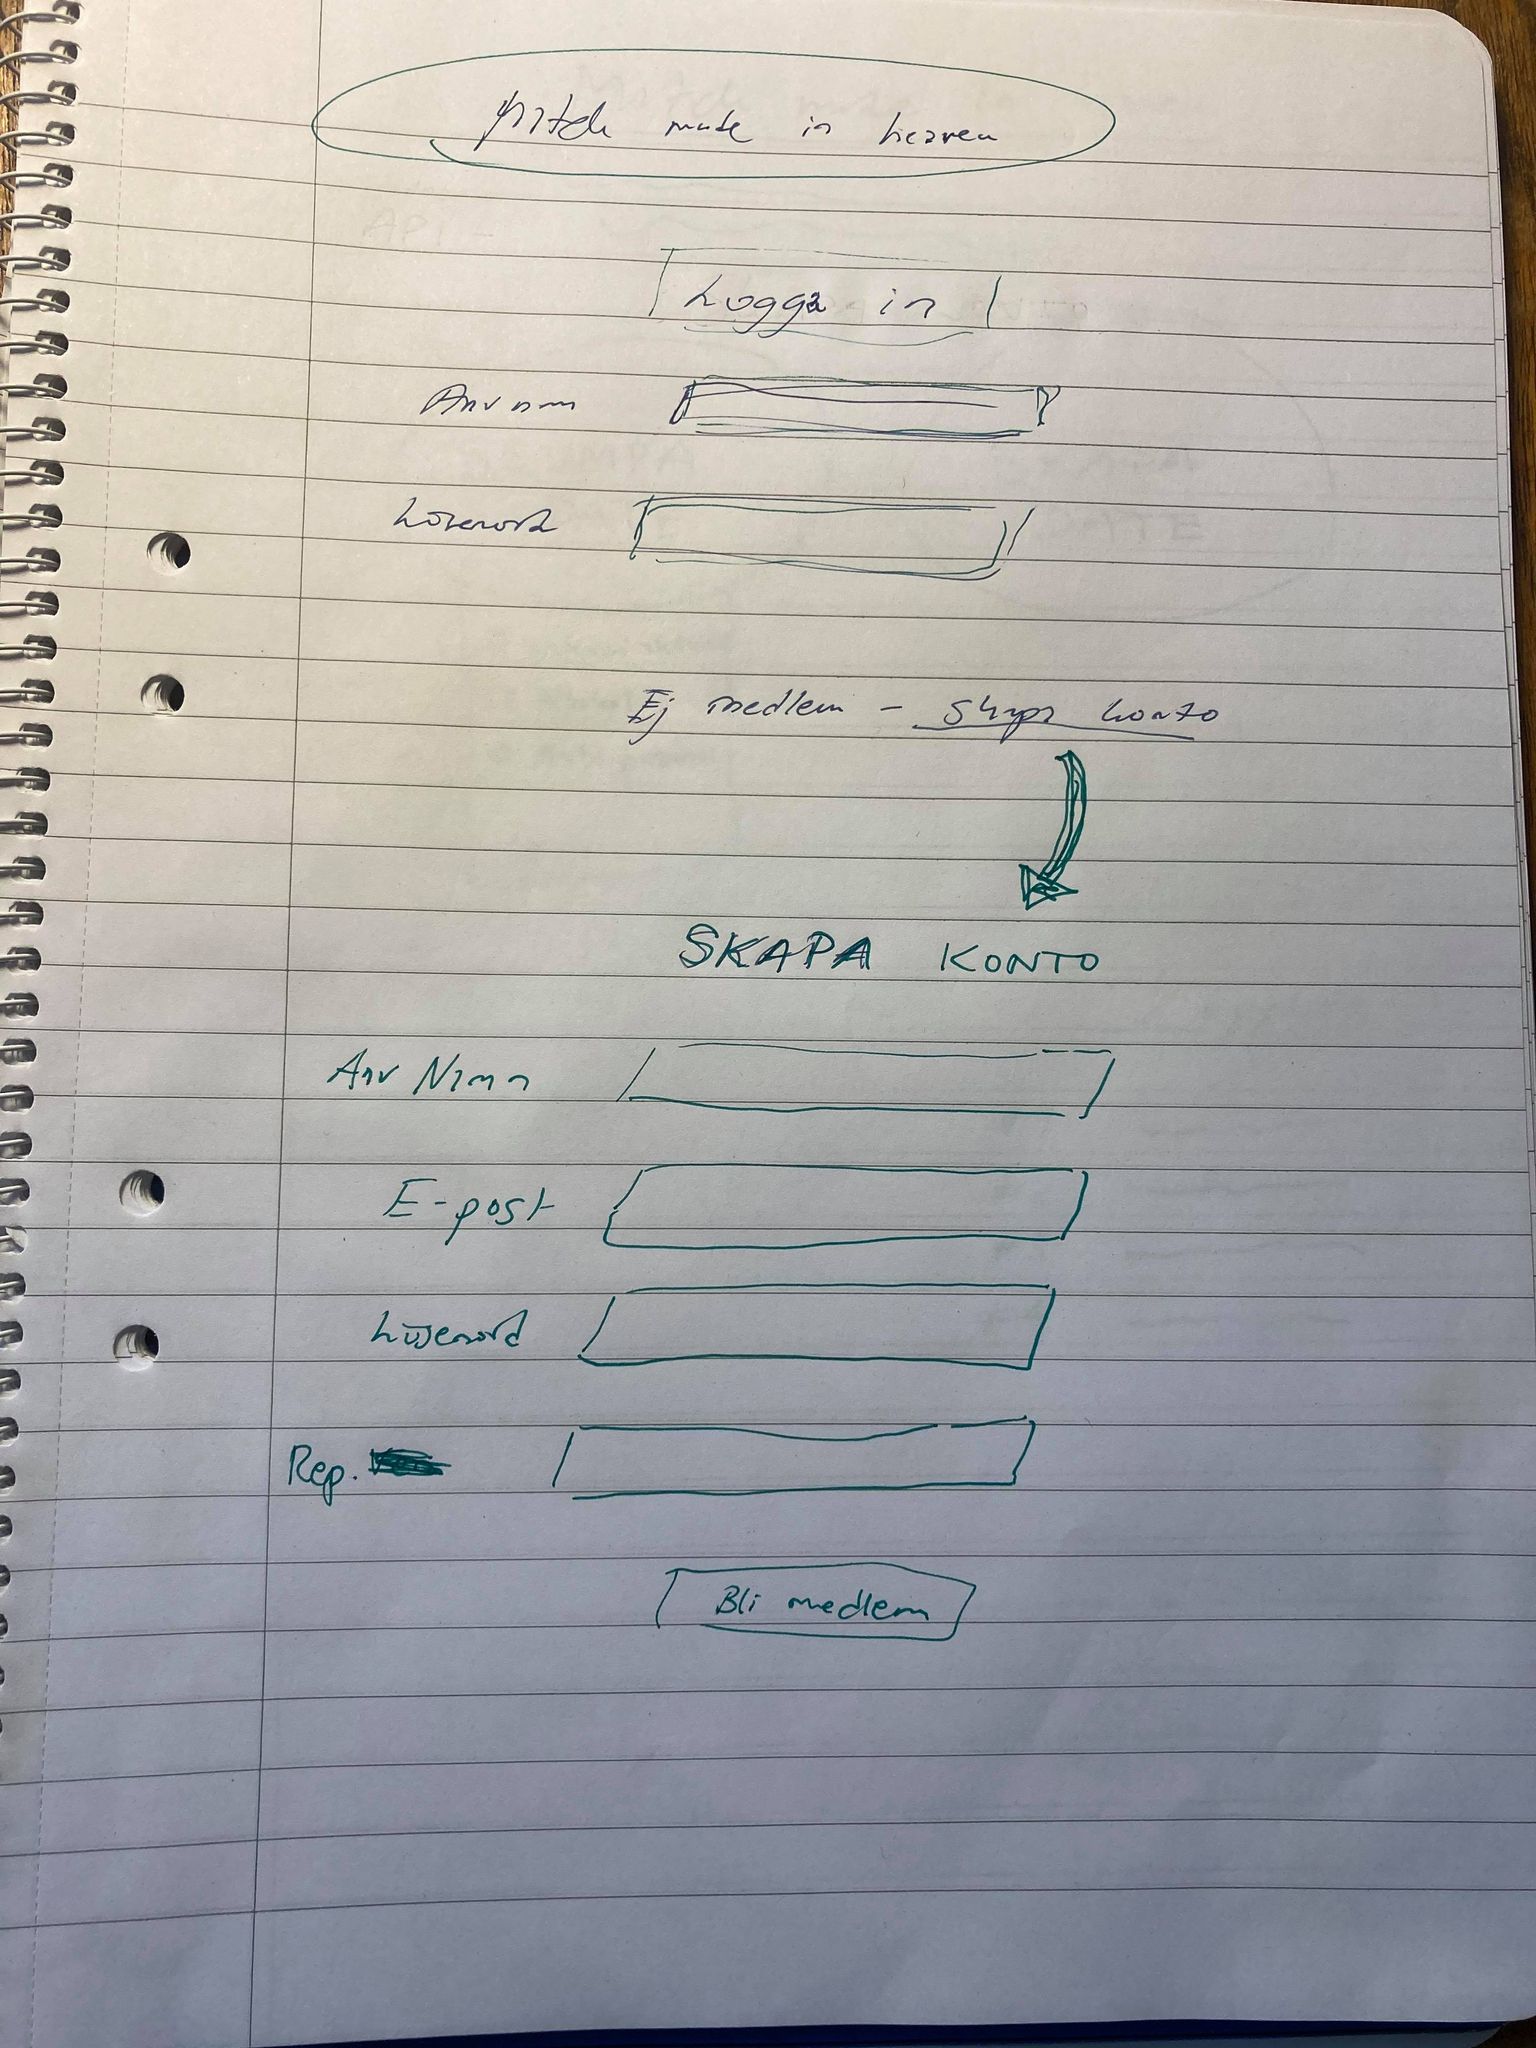 made in heaven
Logga in
Anv namn
Lösenord
Ej medlem - Skapa konto
SKAPA KONTO
Anv Namn
E-post
Lösenord
Rep.
Bli medlem